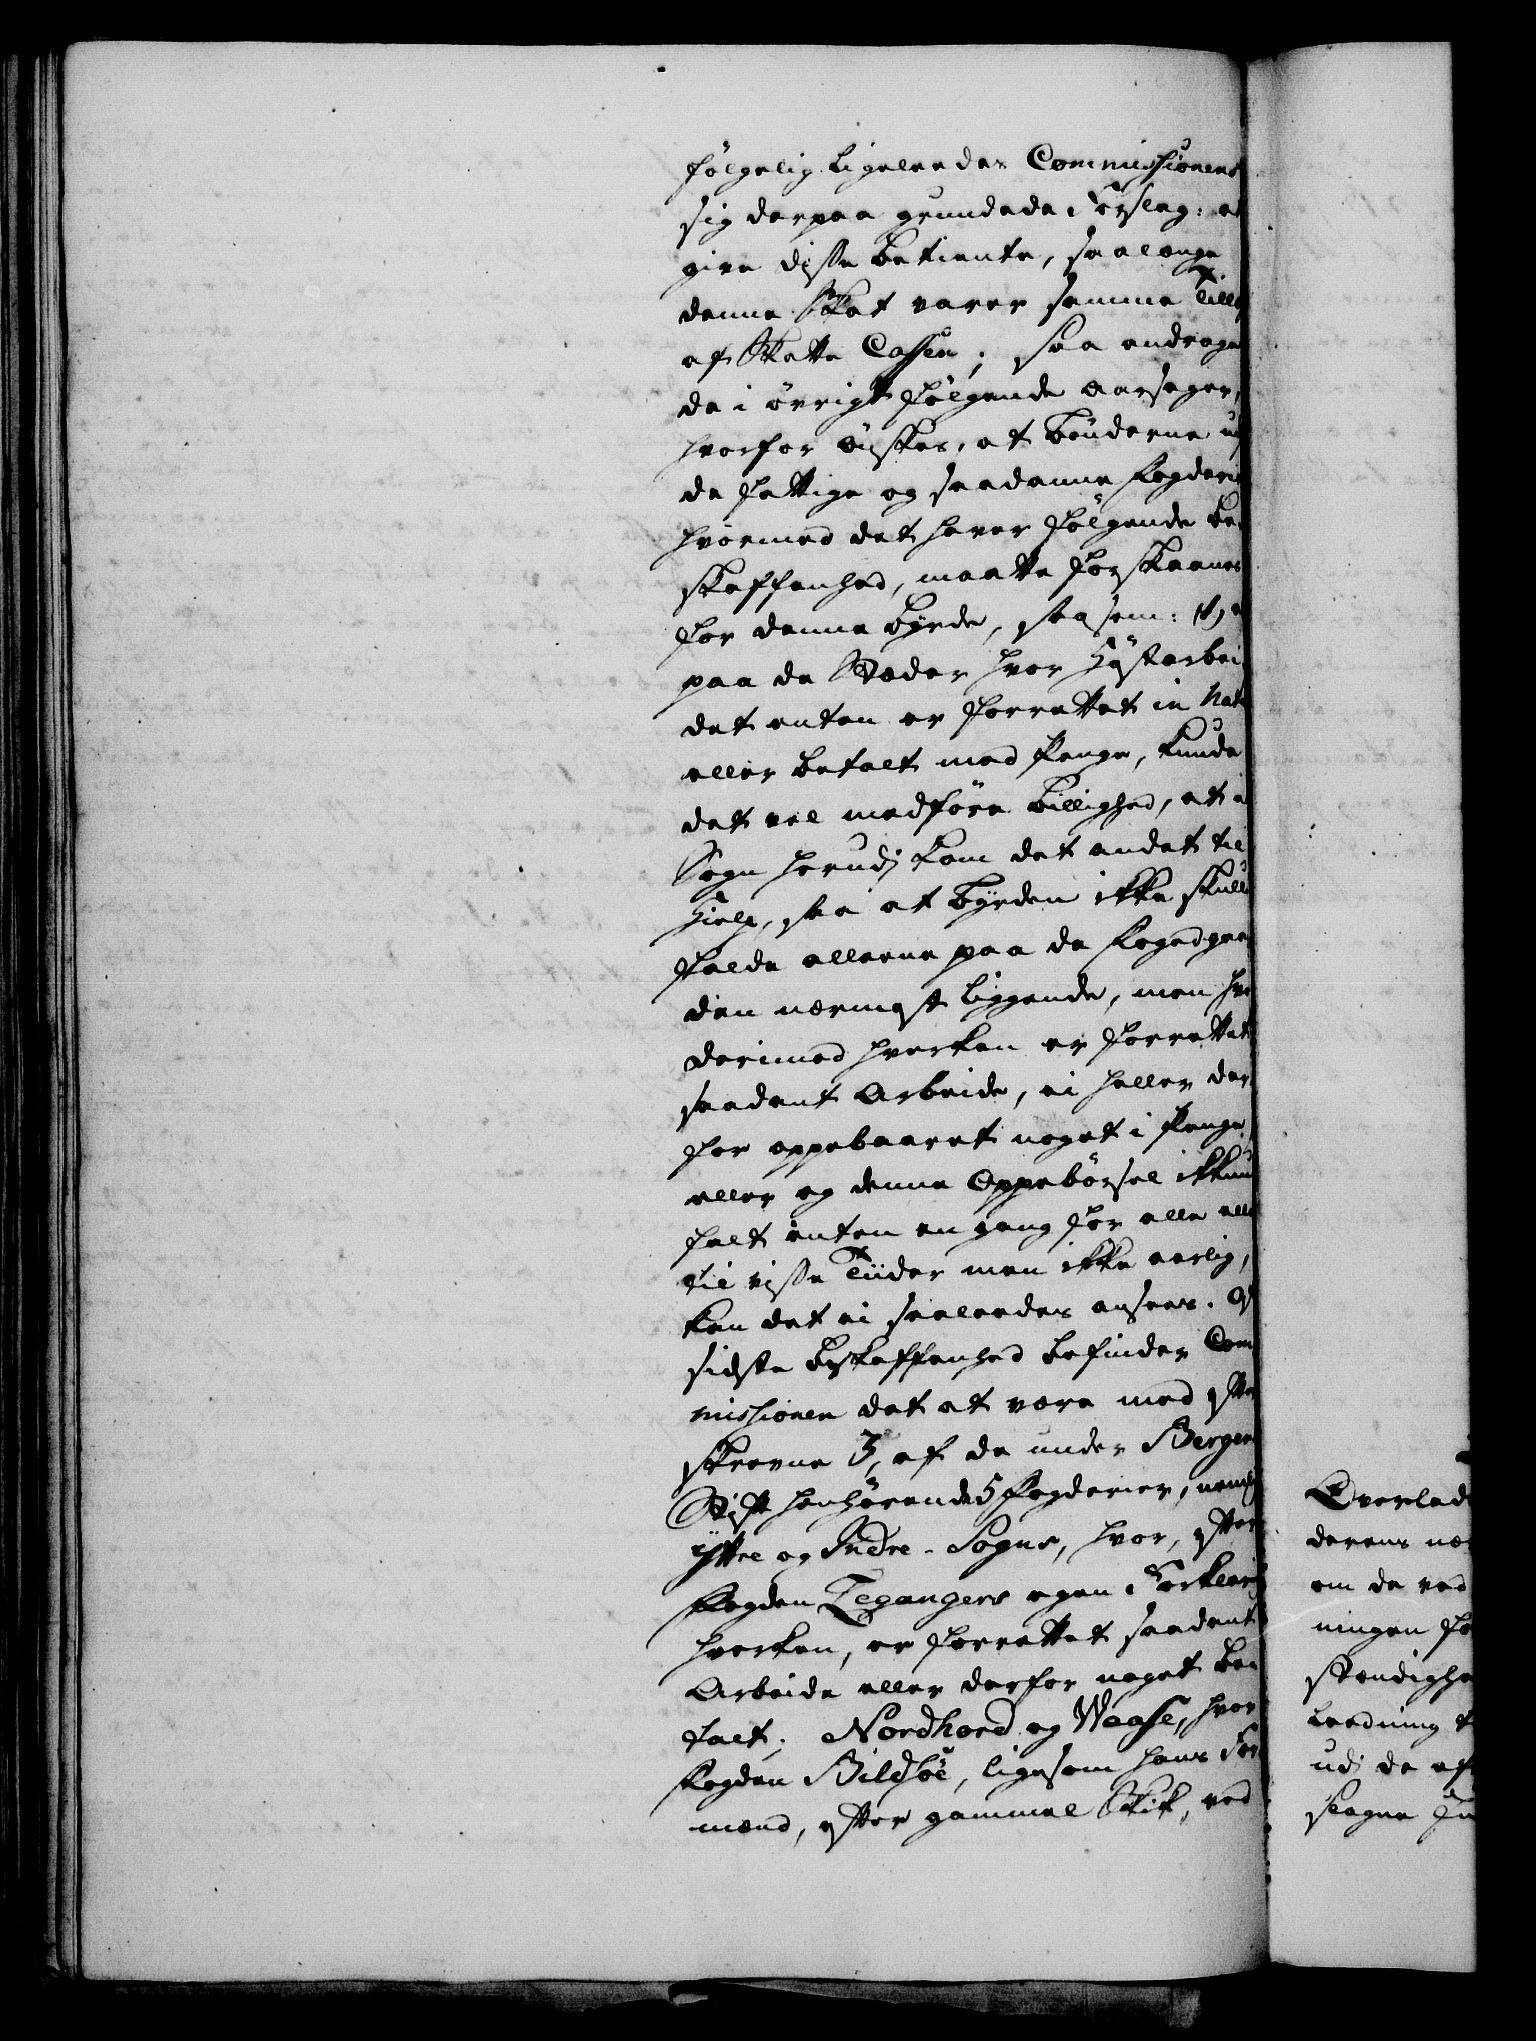 følgelig ligeleedes Commissionens
sig derpaa grundede Forslag: at
give disse Betiente, saalenge
denne Skat varer samme Tillæ
af Skatte Cassen; saa andrages
de i øvrigt følgende Aarsager,
hvorfor ønskes, at Bønderne ud
de fattige og saadanne Fogderie
hvormed det haver følgende Be-
skaffenhed, maatte forskaanes
for denne Byrde, saasom: 1) a
paa de Stæder hvor Høstarbei-
det enten er forrettet in Nat
eller betalt med Penge, kunde
det vel medføre Billighed, at i
Sogn herudj kom det andet til
Hielp, saa at Byrden ikke skulle
falde alleene paa de Fogedgaar
den nærmest liggende, men hv
derimod hverken er forrettet
saadant Arbeide, ei heller der-
for oppebaaret noget i Penge,
eller og denne Oppebørsel ikkun
falt enten en gang for alle elle
til visse Tiider men ikke aarlig,
kan det ei saaleedes ansees. Af
sidste Beskaffenhed befinder Com-
missionen det at være med efter-
skrevne 3, af de under Bergens
Stift henhørende 5 Fogderier, neml
Yttre og Indre-Sogns, hvor, efter
Fogden Tegangers egen Forklaring
hverken, er forrettet saadant
Arbeide eller derfor noget be-
talt; Nordhord og Waase, hvor
Fogden Bildsøe, ligesom hans For-
mænd, efter gammel Skik, ved
Overlad
deres næ
om de ved
ningen fo
stændighe
leedning t
udj de af
slagne Fu